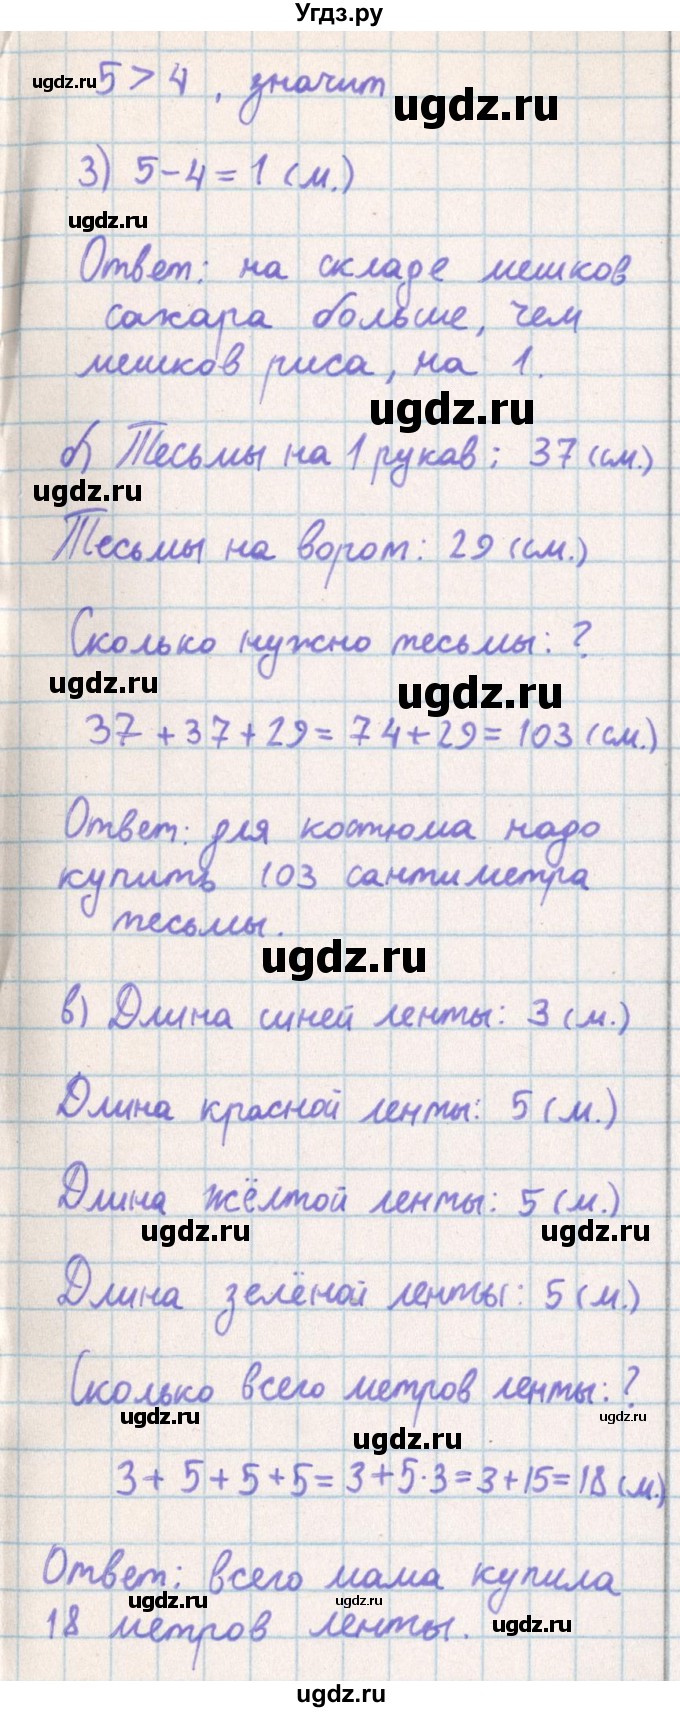 Угдз.ру
ugdz.ru 5 > 4, значит
ugdz.ru
3) 5 - 4 = 1 (м.)
ugdz.ru
Ответ: на складе мешков
сахара больше, чем
мешков риса, на 1.
ugdz.ru
б) Тесьмы на 1 рукав: 37 (см.)
ugdz.ru
Тесьмы на ворот: 29 (см.)
Сколько нужно тесьмы: ?
ugdz.ru ugdz.ru
37 + 37 + 29 = 74 + 29 = 103 (см.)
Ответ: для костюма надо
купить 103 сантиметра
тесьмы.
ugdz.ru
в) Длина синей ленты: 3 (м.)
Длина красной ленты: 5 (м.)
Длина жёлтой ленты: 5 (м.)
ugdz.ru ugdz.ru
Длина зелёной ленты: 5 (м.)
Сколько всего метров ленты: ?
ugdz.ru ugdz.ru
ugdz.ru
3 + 5 + 5 + 5 = 3 + 5 · 3 = 3 + 15 = 18 (м.)
Ответ: всего мама купила
ugdz.ru ugdz.ru
18 метров ленты.
ugdz.ru
ugdz.ru